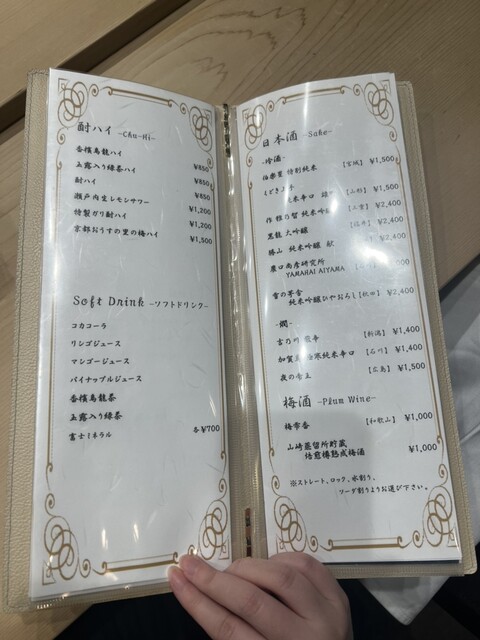 酎ハイ -Chu-Hi-
香檳烏龍ハイ ¥850
玉露入り緑茶ハイ ¥850
酎ハイ ¥850
瀬戸内生レモンサワー ¥1,200
特製ガリ酎ハイ ¥1,200
京都おうすの里の梅ハイ ¥1,500
Soft Drink -ソフトドリンク-
コカコーラ
リンゴジュース
マンゴージュース
パイナップルジュース
香檳烏龍茶
玉露入り緑茶
富士ミネラル 各¥700
日本酒 -Sake-
-冷酒-
伯楽星 特別純米 【宮城】 ¥1,500
くどき上手
純米辛口 【山形】 ¥1,500
作 雅乃智 純米吟醸 【三重】 ¥2,400
黒龍 大吟醸 【福井】 ¥2,400
勝山 純米吟醸 献 ¥2,400
農口尚彦研究所
YAMAHAI AIYAMA
雪の茅舎
純米吟醸ひやおろし【秋田】 ¥2,400
-燗-
吉乃川 【新潟】 ¥1,400
加賀 極寒純米辛口 【石川】 ¥1,400
夜の帝王 【広島】 ¥1,500
梅酒 -Plum Wine-
梅市香 【和歌山】 ¥1,000
山崎蒸留所貯蔵
焙煎樽熟成梅酒 ¥1,000
※ストレート、ロック、水割り、
ソーダ割りようお選び下さい。